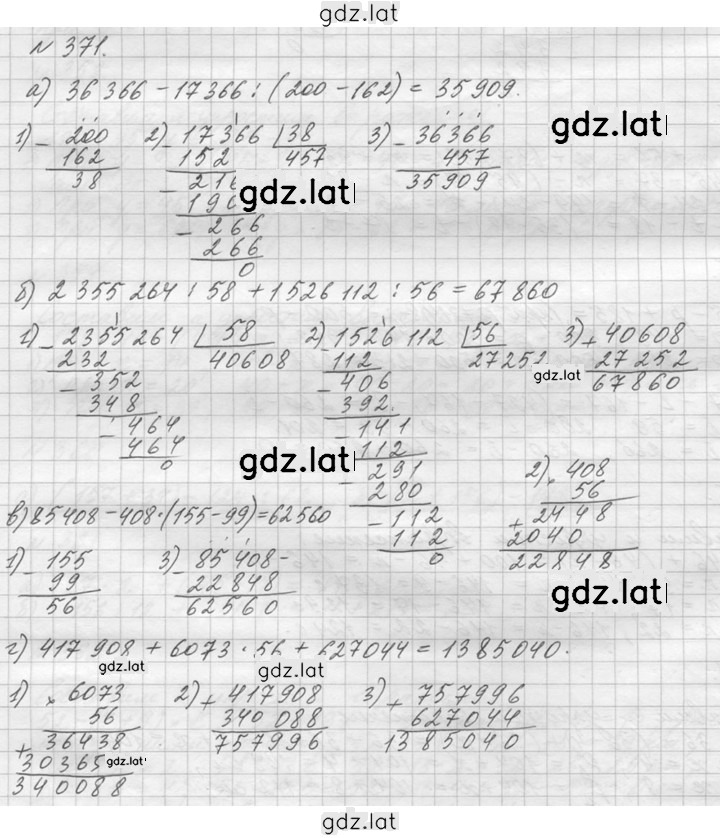 gdz.lat
№ 371.
а) 36 366 - 17 366 : (200 - 162) = 35 909.
1) - 200
162
38
2) - 17366 | 38
152 | 457
- 216
190
- 266
266
0
3) - 36366
457
35909
gdz.lat
gdz.lat
б) 2 355 264 : 58 + 1 526 112 : 56 = 67 860
1) - 2355264 | 58
232 | 40608
- 352
348
- 464
464
0
2) - 1526112 | 56
112 | 27252
- 406
392
- 141
112
- 291
280
- 112
112
0
3) + 40608
27252
67860
gdz.lat
gdz.lat
в) 85408 - 408 · (155 - 99) = 62560
1) - 155
99
56
2) × 408
56
+ 2448
2040
22848
3) - 85408
22848
62560
gdz.lat
г) 417 908 + 6073 · 56 + 627044 = 1385040.
gdz.lat
gdz.lat
1) × 6073
56
+ 36438
30365
340088
gdz.lat
2) + 417908
340 088
757996
3) + 757996
627044
1385040
gdz.lat